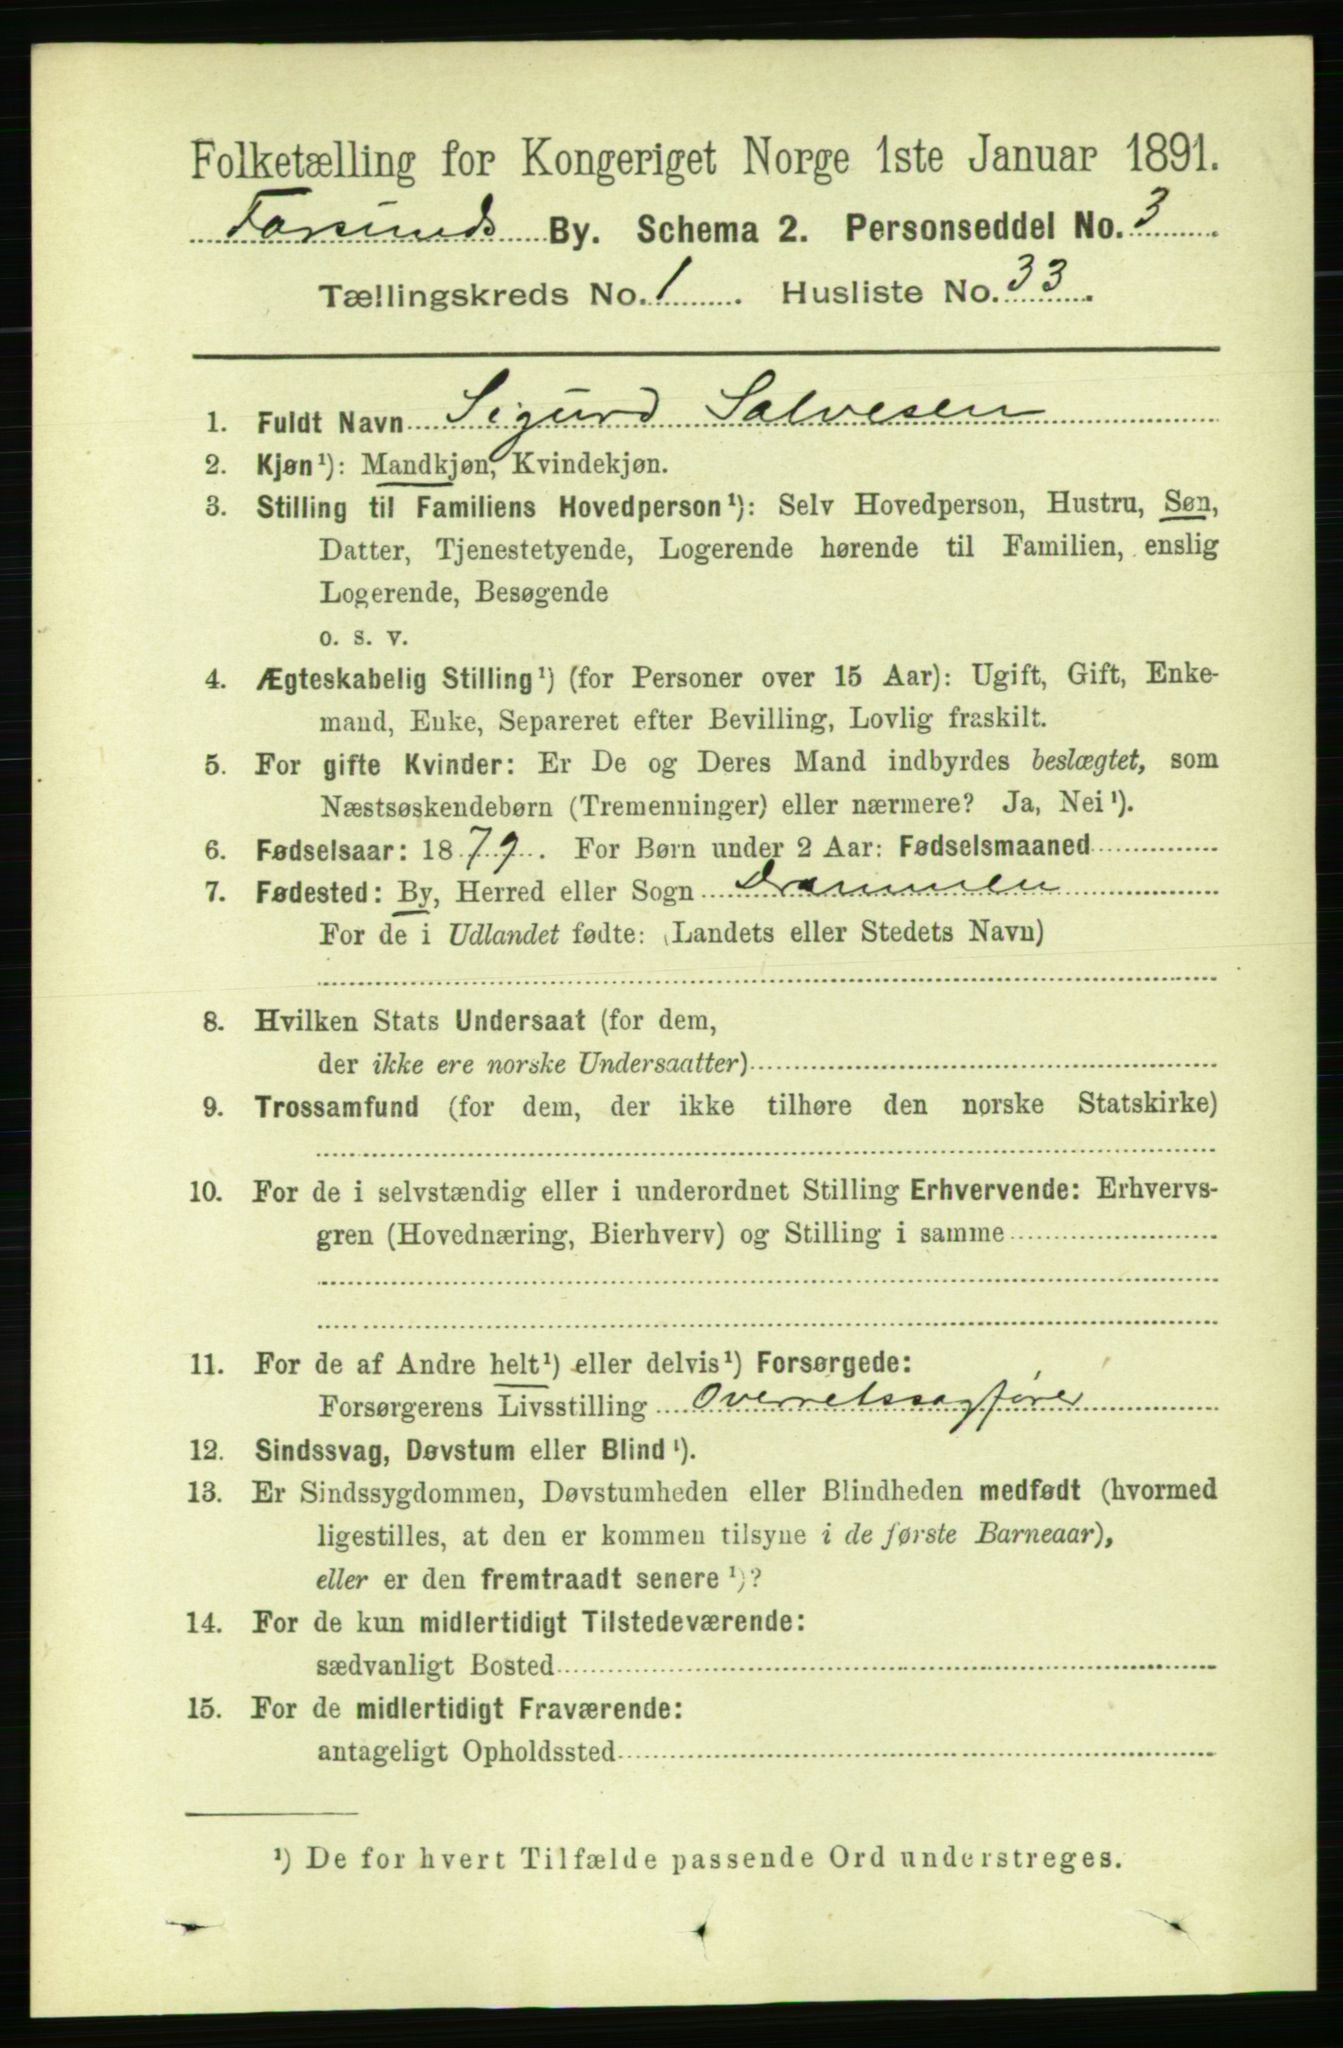 Folketælling for Kongeriget Norge 1ste Januar 1891.
Farsunds By. Schema 2. Personseddel No. 3.
Tællingskreds No. 1. Husliste No. 33.
1. Fuldt Navn Sigurd Salvesen
2. Kjøn¹): Mandkjøn, Kvindekjøn.
3. Stilling til Familiens Hovedperson¹): Selv Hovedperson, Hustru, Søn,
Datter, Tjenestetyende, Logerende hørende til Familien, enslig
Logerende, Besøgende
o. s. v.
4. Ægteskabelig Stilling¹) (for Personer over 15 Aar): Ugift, Gift, Enke-
mand, Enke, Separeret efter Bevilling, Lovlig fraskilt.
5. For gifte Kvinder: Er De og Deres Mand indbyrdes beslægtet, som
Næstsøskendebørn (Tremenninger) eller nærmere? Ja, Nei¹).
6. Fødselsaar: 1879. For Børn under 2 Aar: Fødselsmaaned
7. Fødested: By, Herred eller Sogn Drammen
For de i Udlandet fødte: (Landets eller Stedets Navn)
8. Hvilken Stats Undersaat (for dem,
der ikke ere norske Undersaatter)
9. Trossamfund (for dem, der ikke tilhøre den norske Statskirke)
10. For de i selvstændig eller i underordnet Stilling Erhvervende: Erhvervs-
gren (Hovednæring, Bierhverv) og Stilling i samme
11. For de af Andre helt¹) eller delvis¹) Forsørgede:
Forsørgerens Livsstilling Overretssagfører
12. Sindssvag, Døvstum eller Blind¹).
13. Er Sindssygdommen, Døvstumheden eller Blindheden medfødt (hvormed
ligestilles, at den er kommen tilsyne i de første Barneaar),
eller er den fremtraadt senere¹)?
14. For de kun midlertidigt Tilstedeværende:
sædvanligt Bosted
15. For de midlertidigt Fraværende:
antageligt Opholdssted
¹) De for hvert Tilfælde passende Ord understreges.